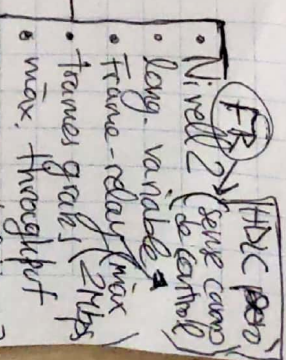 FR
HDLC pero
• Nivell 2 (sense camp de control)
• long. variable
• Frame-relay (màx 2Mbps)
• Frames grans
• màx. throughput